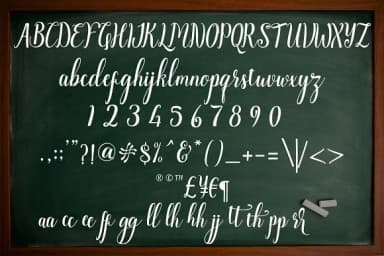 ABCDEFGHIJKLMNOPQRSTUVWXYZ
abcdefghijklmnopqrstuvwxyz
1234567890
.,:;'"?!@#$%^&*()_+-=\|/<>
®©™
£¥€¶
aa cc ee ff gg ll lh hh jj tt th pp rr